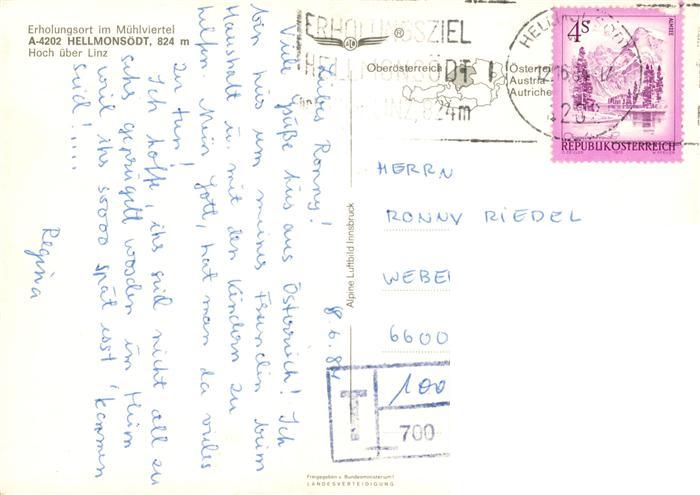 Erholungsort im Mühlviertel
A-4202 HELLMONSÖDT, 824 m
Hoch über Linz
ERHOLUNGSZIEL
HELLMONSÖDT
LINZ, 824m
®
Oberösterreich
Österre
Austria
Autriche
HELLMONSÖDT
4S
ALMSEE
REPUBLIK ÖSTERREICH
8.6.84
Liebes Ronny!
Viele Grüße hier aus Österreich! Ich
bin hier um meiner Freundin beim
Haushalt u. mit den Kindern zu
helfen. Mein Gott, hat man da vieles
zu tun!
Ich hoffe, ihr seid nicht all zu
sehr geprügelt worden im Heim
weil ihr soooo spät erst kommen
seid!....
Regina
Alpine Luftbild Innsbruck
HERRN
RONNY RIEDEL
WEBE
6600
T
100
700
Freigegeben v. Bundesministerium f.
LANDESVERTEIDIGUNG